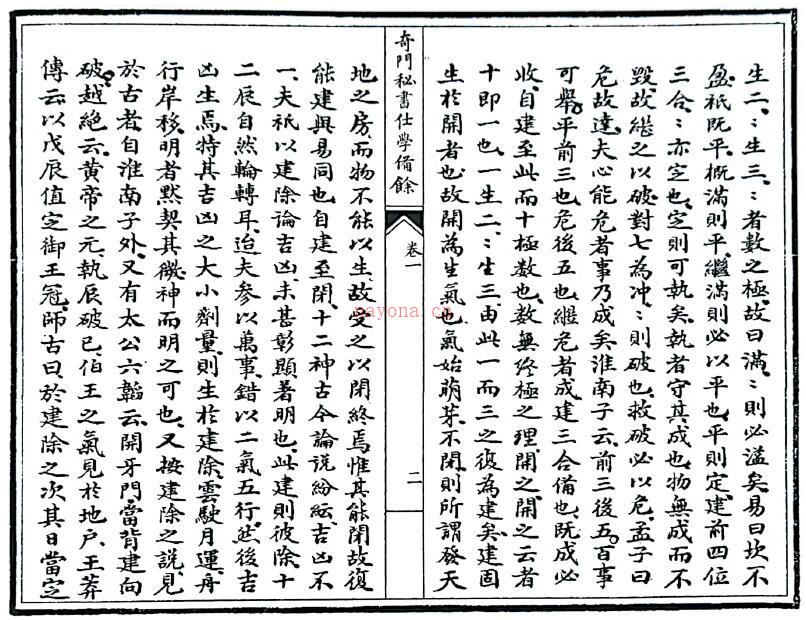 生二、:生三、:者數之極、故曰滿、:則必溢矣、易曰坎不
盈、祇既平、概滿則平、繼滿則必以平也、平則定、建前四位
三合、:亦定也、定則可執矣、執者守其成也、物無成而不
毀、故繼之以破、對七為冲、:則破也、救破必以危、孟子曰
危故達、夫心能危者事乃成矣、淮南子云、前三後五、百事
可舉、平前三也、危後五也、繼危者成、建三合備也、既成必
收、自建至此而十、極數也、數無終極之理、開之、開之云者
十即一也、一生二、:生三、由此一而三之、復為建矣、建固
生於開者也、故開為生氣也、氣始萌芽、不閉則所謂發天
奇門秘書仕學備餘
卷一
二
地之房、而物不能以生、故受之以閉終焉、惟其能閉故復
能建、與易同也、自建至閉、十二神古今論說紛紜、吉凶不
一、夫祇以建除論吉凶、未甚彰顯著明也、此建則彼除、十
二辰自然輪轉耳、迨夫參以萬事、錯以二氣五行、然後吉
凶生焉、特其吉凶之大小劑量、則生於建除、雲駛月運、舟
行岸移、明者默契其微、神而明之可也、又按建除之說、見
於古者、自淮南子外、又有太公六韜云、開牙門、當背建向
破、越絕云、黃帝之元、執辰破巳、伯王之氣、見於地戶、王莽
傳云、以戊辰值定、御王冠、師古曰、於建除之次、其日當定